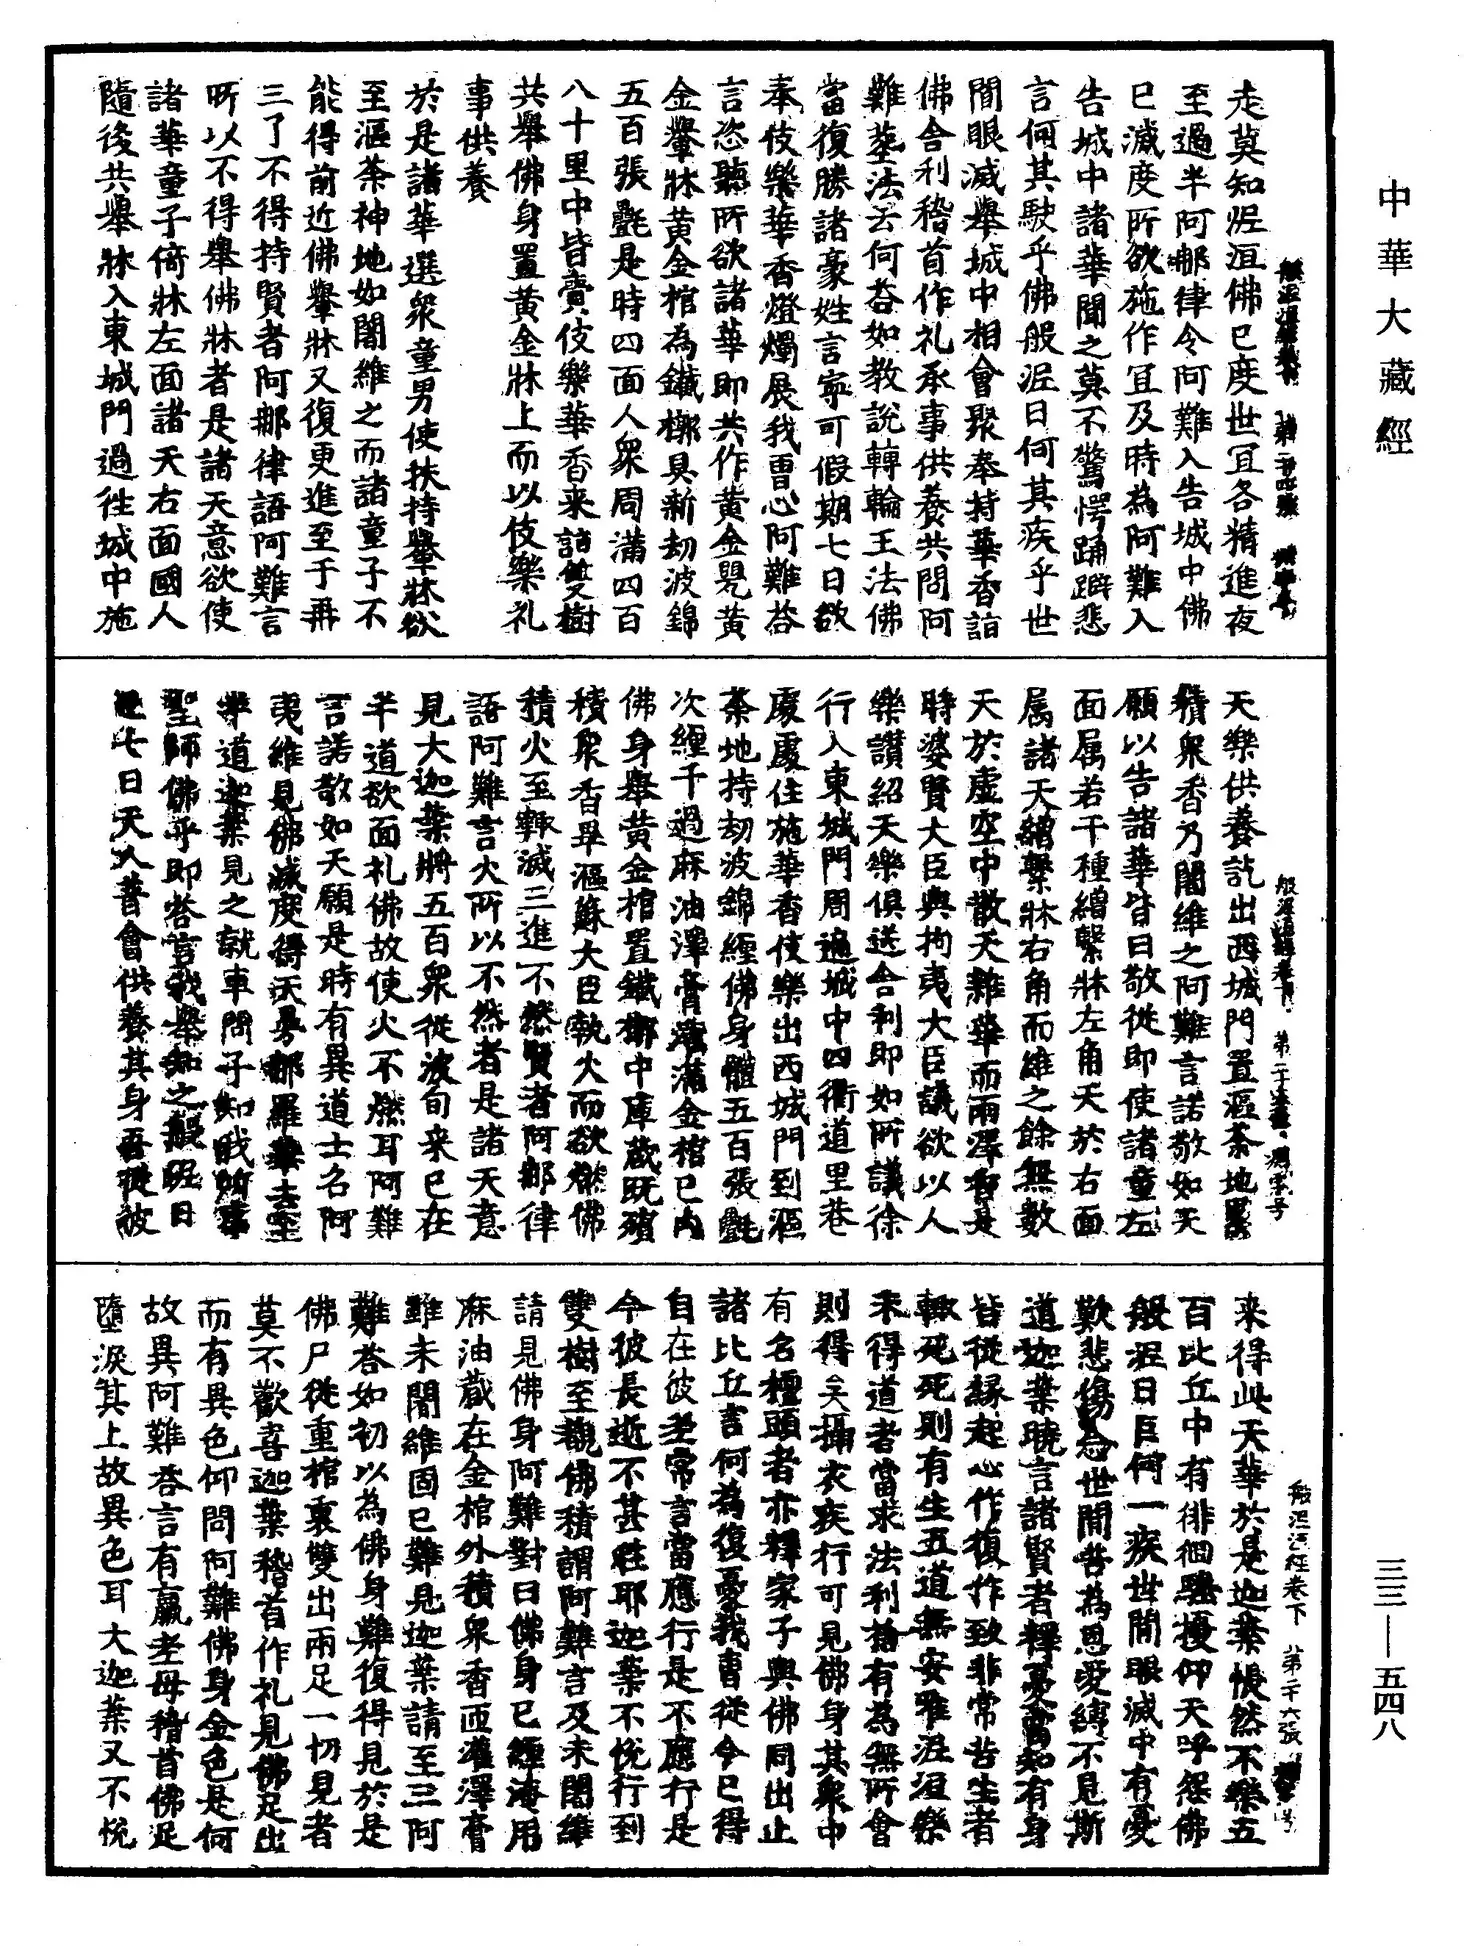 中華大藏經
三三—五四八
走莫知泥洹佛已度世冝各精進夜
至過半阿那律令阿難入告城中佛
已滅度所欲施作冝及時為阿難入
告城中諸華聞之莫不驚愕踊躃悲
言何其駛乎佛般泥曰何其疾乎世
間眼滅舉城中相會聚奉持華香詣
佛舍利稽首作礼承事供養共問阿
難塟法云何荅如教說轉輪王法佛
當復勝諸豪姓言寧可假期七日欲
奉伎樂華香燈燭展我曹心阿難荅
言恣聽所欲諸華即共作黃金甖黃
金轝牀黃金棺為鐵槨具新劫波錦
五百張㲲是時四面人衆周滿四百
八十里中皆賫伎樂華香来詣雙樹
共舉佛身置黃金牀上而以伎樂礼
事供養
於是諸華選衆童男使扶持轝牀欲
至漚荼神地如闍維之而諸童子不
能得前近佛轝牀又復更進至于再
三了不得持賢者阿那律語阿難言
所以不得舉佛牀者是諸天意欲使
諸華童子倚牀左面諸天右面國人
隨後共舉牀入東城門過徃城中施
天樂供養訖出西城門置漚荼地
積衆香乃闍維之阿難言諾敬如天
願以告諸華皆曰敬從即使諸童左
面属若干種繒繫牀左角天於右面
属諸天繒繫牀右角而維之餘無數
天於虛空中散天雜華而雨澤香是
時婆賢大臣與拘夷大臣議欲以人
樂讃紹天樂俱送舍利即如所議徐
行入東城門周遍城中四衢道里巷
處處住施華香伎樂出西城門到漚
荼地持劫波錦纏佛身體五百張㲲
次纏千過麻油澤膏灌滿金棺已內
佛身舉黃金棺置鐵槨中庫藏既殯
積衆香畢漚蘇大臣執火而欲燃佛
積火至輒滅三進不然賢者阿那律
語阿難言火所以不然者是諸天意
見大迦葉將五百衆從波旬来已在
半道欲面礼佛故使火不燃耳阿難
言諾敬如天願是時有異道士名阿
夷維見佛滅度得天曼那羅華去至
半道迦葉見之就車問子知我所事
聖師佛乎即荅言我舉知之般泥曰
七日天人普會供養其身吾從彼
来得此天華於是迦葉悵然不樂五
百比丘中有徘徊騷擾仰天呼怨佛
般泥曰何一疾世間眼滅中有憂
歎悲傷念世間苦為恩愛縛不見斯
道迦葉曉言諸賢者釋憂當知有身
皆從緣起心作復作致非常苦生者
輒死死則有生五道無安唯泥洹樂
未得道者當求法利捨有為無所會
則得矣攝衣疾行可見佛身其衆中
有名檀頭者亦釋家子與佛同出止
諸比丘言何為復憂我曹從今已得
自在彼老常言當應行是不應行是
今彼長逝不甚快耶迦葉不悅行到
雙樹至觀佛積謂阿難言及未闍維
請見佛身阿難對曰佛身已纏淹用
麻油藏在金棺外積衆香匝灌澤膏
雖未闍維固已難見迦葉請至三阿
難荅如初以為佛身難復得見於是
佛尸從重棺裏雙出兩足一切見者
莫不歡喜迦葉稽首作礼見佛足出
而有異色仰問阿難佛身金色是何
故異阿難荅言有羸老母稽首佛足
墮淚其上故異色耳大迦葉又不悅
般泥洹經卷下 第二十六張